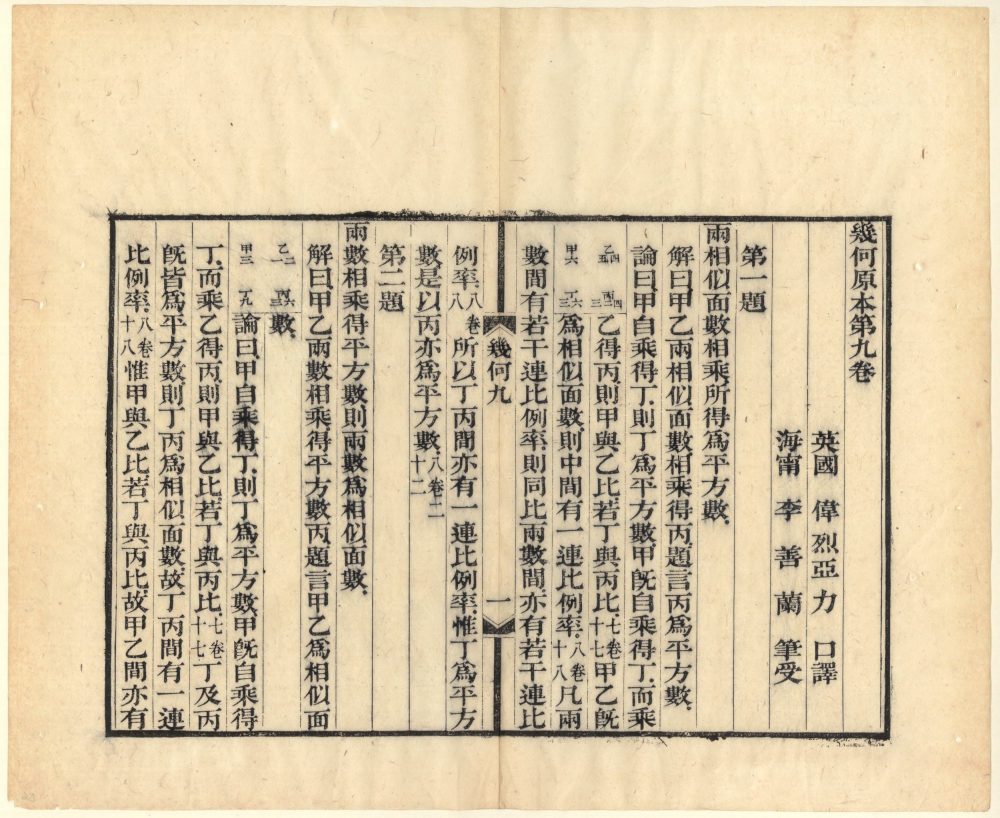 幾何原本第九卷
英國 偉烈亞力 口譯
海甯 李善蘭 筆受
第一題
兩相似面數相乘所得爲平方數
解曰甲乙兩相似面數相乘得丙題言丙爲平方數
論曰甲自乘得丁則丁爲平方數甲旣自乘得丁而乘
乙得丙則甲與乙比若丁與丙比七卷十七甲乙旣
爲相似面數則中間有一連比例率八卷十八凡兩
數間有若干連比例率則同比兩數間亦有若干連比
幾何九 一
例率八卷八所以丁丙間亦有一連比例率惟丁爲平方
數是以丙亦爲平方數八卷二十二
第二題
兩數相乘得平方數則兩數爲相似面數
解曰甲乙兩數相乘得平方數丙題言甲乙爲相似面
數
論曰甲自乘得丁則丁爲平方數甲旣自乘得
丁而乘乙得丙則甲與乙比若丁與丙比七卷十七丁及丙
旣皆爲平方數則丁丙爲相似面數故丁丙間有一連
比例率八卷十八惟甲與乙比若丁與丙比故甲乙間亦有